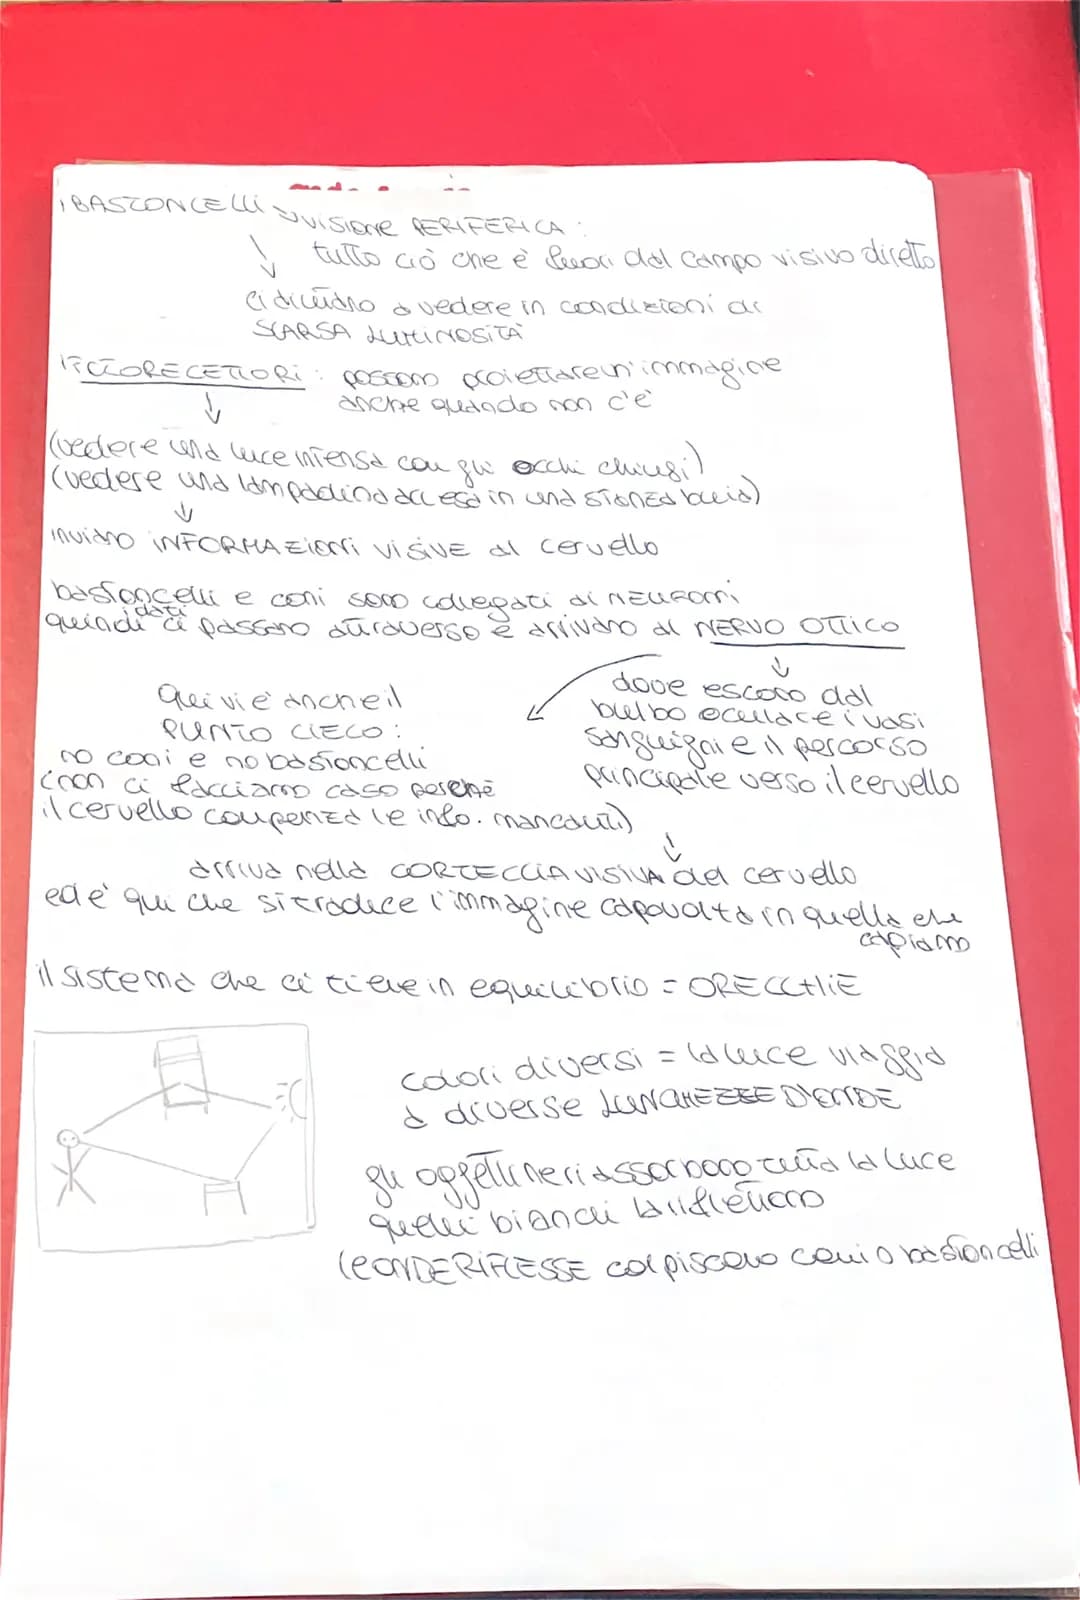 i BASTONCELLI → VISIONE PERIFERICA :
tutto ciò che è fuori dal campo visivo diretto
ci aiutano a vedere in condizioni di
SCARSA LUMINOSITÀ
I FOTORECETTORI : possono proiettare un'immagine
anche quando non c'è
(vedere una luce intensa con gli occhi chiusi)
(vedere una lampadina accesa in una stanza buia)
inviano INFORMAZIONI VISIVE al cervello
bastoncelli e coni sono collegati ai NEURONI
quindi i dati ci passano attraverso e arrivano al NERVO OTTICO
dove escono dal
bulbo oculare i vasi
sanguigni e il percorso
principale verso il cervello
Qui vi è anche il
PUNTO CIECO :
no coni e no bastoncelli
(non ci facciamo caso perché
il cervello compensa le info. mancanti)
arriva nella CORTECCIA VISIVA del cervello
ed è qui che si traduce l'immagine capovolta in quella che
capiamo
il sistema che ci tiene in equilibrio = ORECCHIE
colori diversi = la luce viaggia
a diverse LUNGHEZZE D'ONDE
gli oggetti neri assorbono tutta la luce
quelli bianchi la riflettono
le ONDE RIFLESSE colpiscono coni o bastoncelli